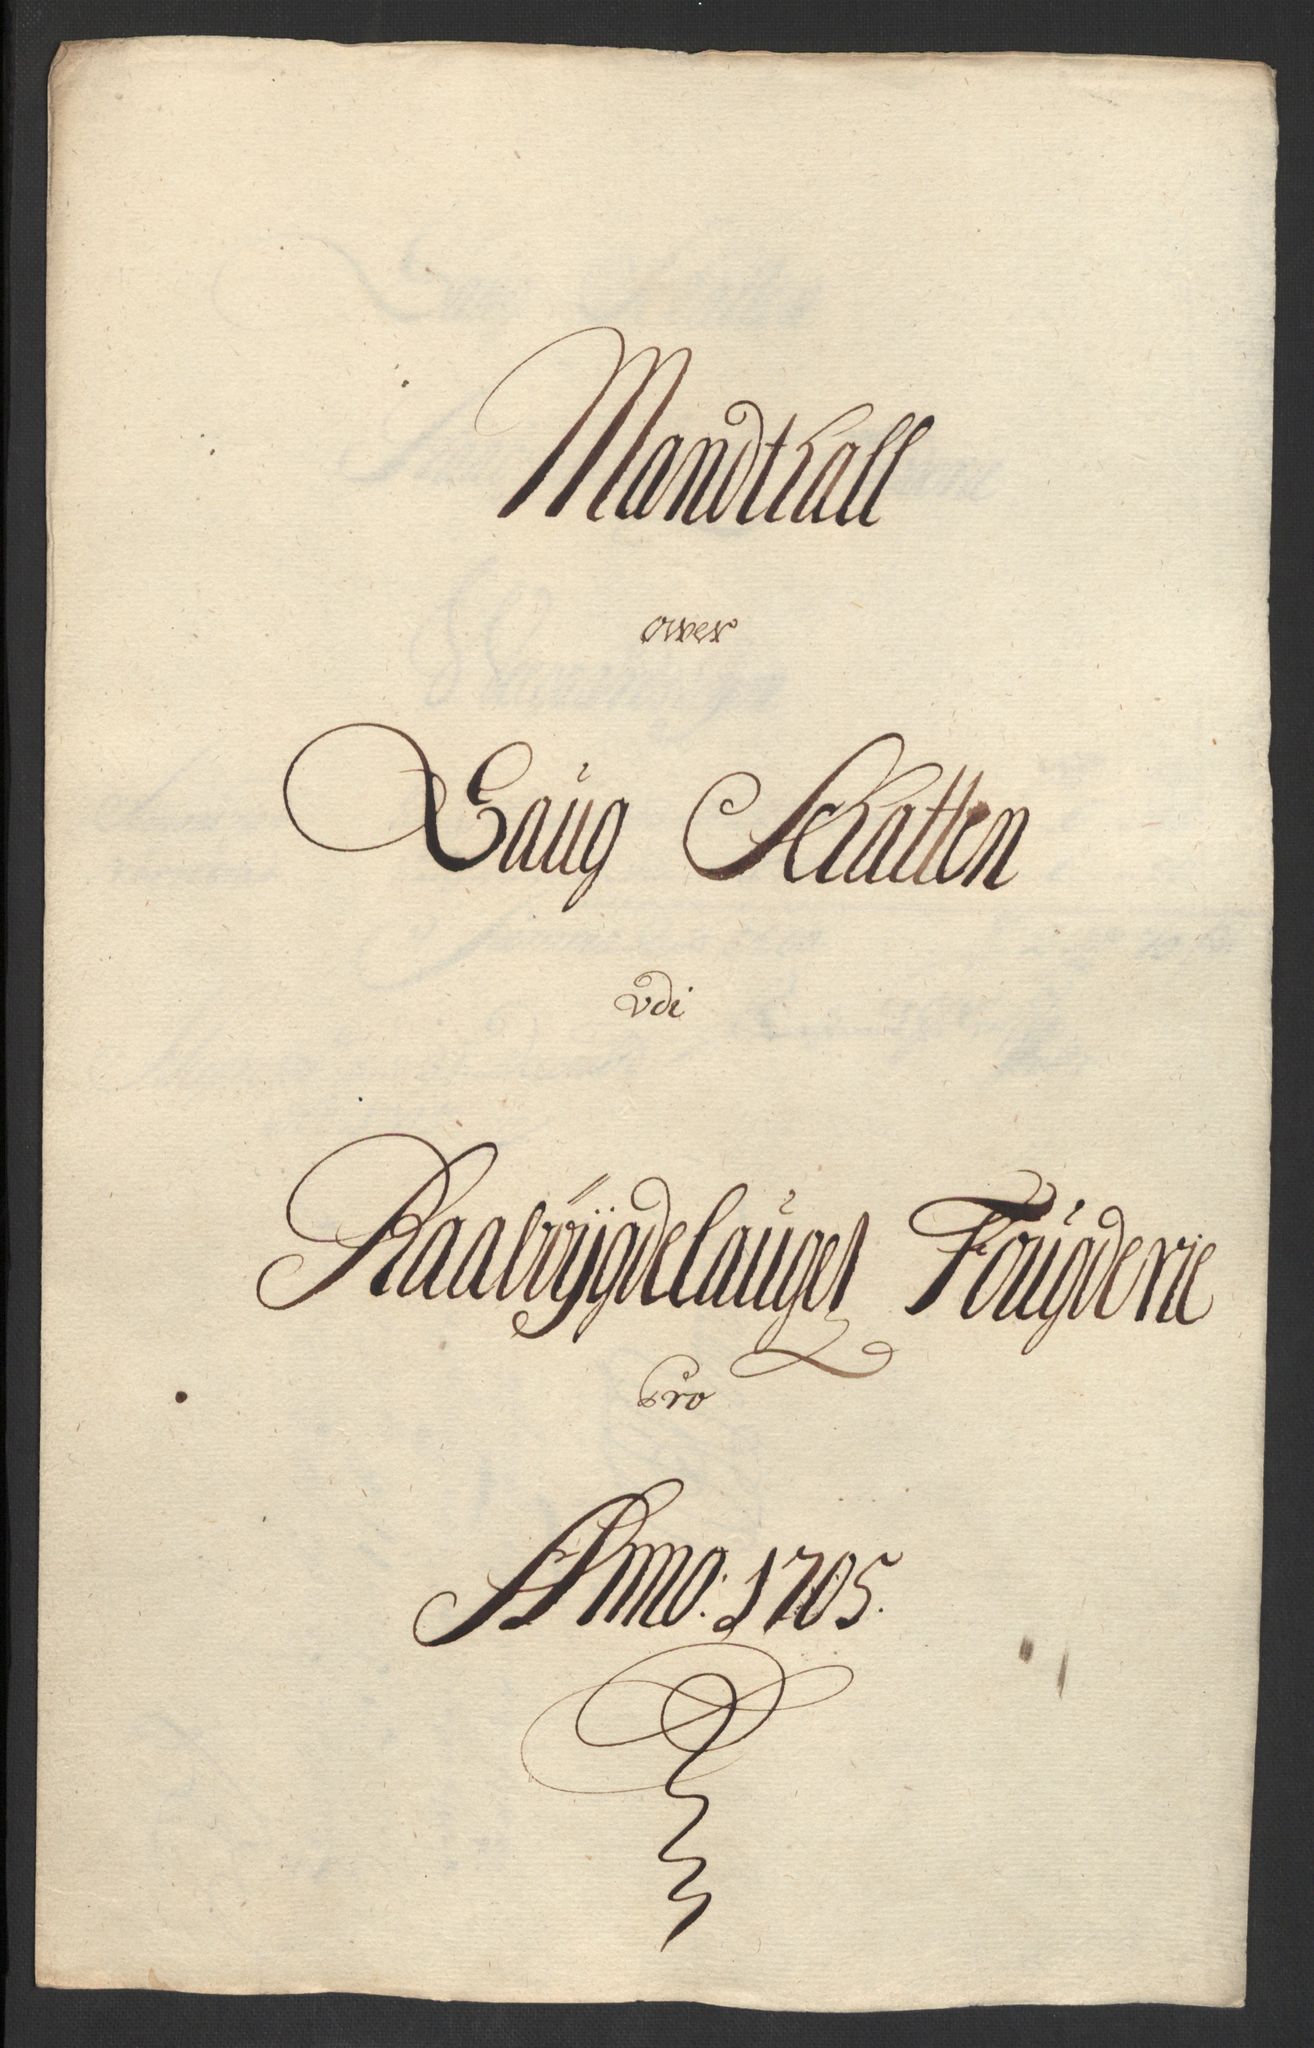 Mandthall
over
Laug Schatten
vdi
Raabøÿgdelauget Fougderie
pro
Anno: 1705.